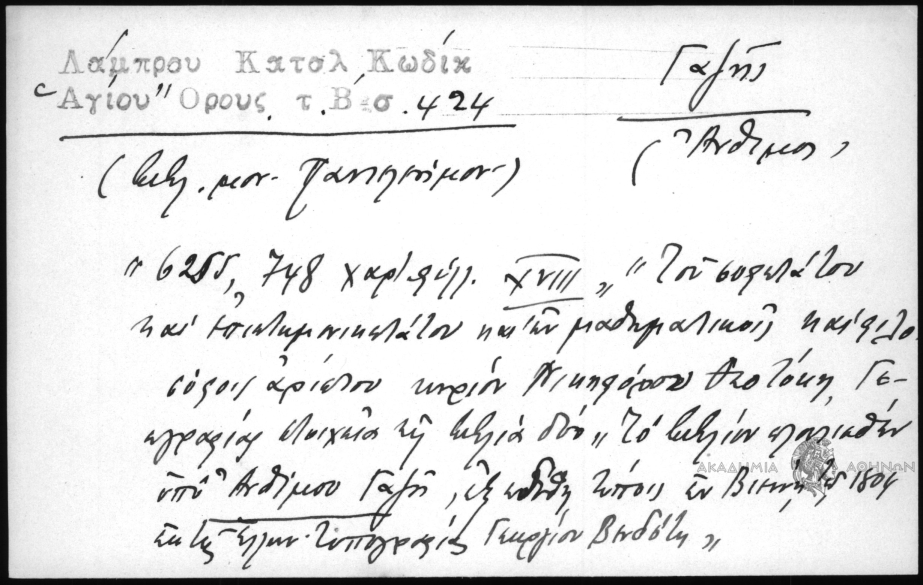 Λάμπρου Κατάλ Κωδίκ
Ἁγίου Ὄρους τ. Β΄ σ. 424
Γαζῆς
(Ἄνθιμος)
(βιβλ. μον. Παντελεήμον.)
"6255, 748 χαρτ. φύλλ. XVIII „ "Τοῦ σοφωτάτου
καὶ ἐπιστημονικωτάτου καὶ ἐν μαθηματικοῖς καὶ φιλο-
σόφοις ἀρίστου κυρίου Νικηφόρου Θεοτόκη, Γε-
ωγραφίας στοιχεῖα εἰς βιβλία δύο „ Τὸ βιβλίον πλουτισθὲν
ὑπὸ Ἀνθίμου Γαζῆ, ἐξεδόθη τύποις ἐν Βιέννῃ τῷ 1804
ἐκ τῆς Ἑλλην. τυπογραφίας Γεωργίου Βενδότη „
ΑΚΑΔΗΜΙΑ ΑΘΗΝΩΝ